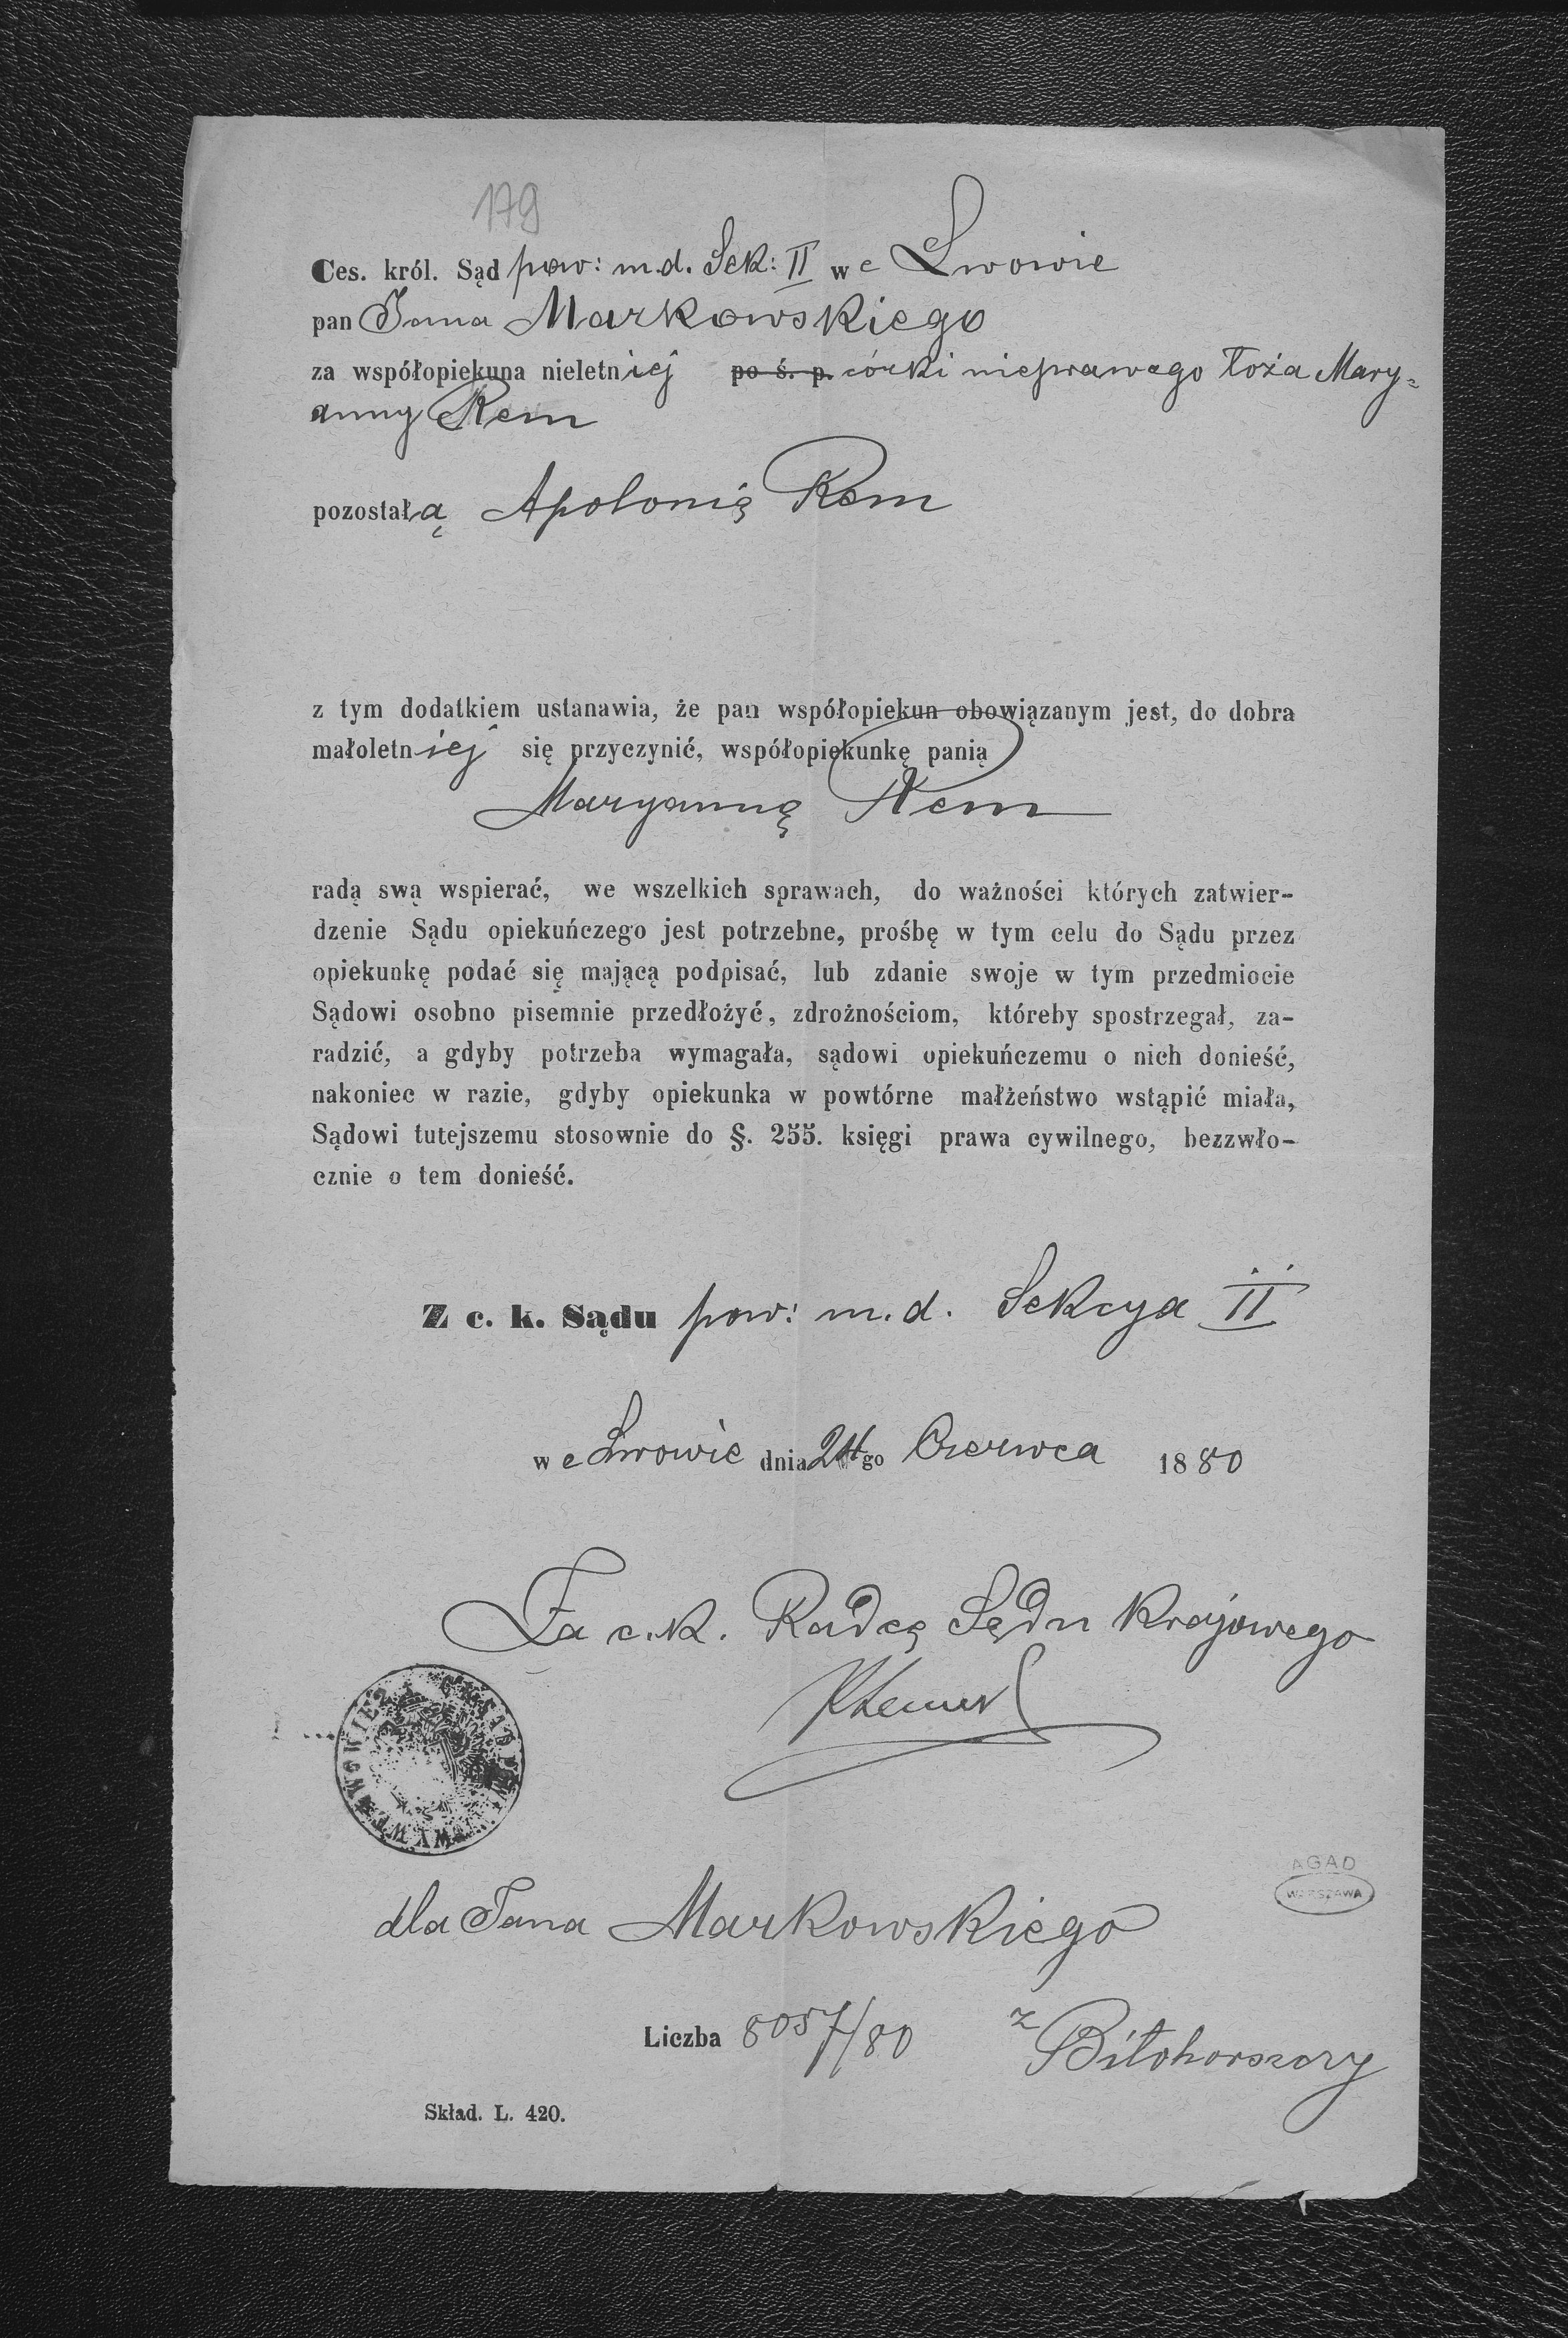 179
Ces. król. Sąd pow: m.d. Sek: II we Lwowie
pan Jana Markowskiego
za współopiekuna nieletniej po ś. p. córki nieprawego łoża Mary=
anny Rem
pozostałą Apolonię Rem
z tym dodatkiem ustanawia, że pan współopiekun obowiązanym jest, do dobra
małoletniej się przyczynić, współopiekunkę panią
Maryannę Rem
radą swą wspierać, we wszelkich sprawach, do ważności których zatwier-
dzenie Sądu opiekuńczego jest potrzebne, prośbę w tym celu do Sądu przez
opiekunkę podać się mającą podpisać, lub zdanie swoje w tym przedmiocie
Sądowi osobno pisemnie przedłożyć, zdrożnościom, któreby spostrzegał, za-
radzić, a gdyby potrzeba wymagała, sądowi opiekuńczemu o nich donieść,
nakoniec w razie, gdyby opiekunka w powtórne małżeństwo wstąpić miała,
Sądowi tutejszemu stosownie do §. 255. księgi prawa cywilnego, bezzwło-
cznie o tem donieść.
Z c. k. Sądu pow: m.d. Sekcya II
we Lwowie dnia 24go Czerwca 1880
Za c.k. Radcę Sądu Krajowego
dla Jana Markowskiego
AGAD
WARSZAWA
Liczba 8057/80 z Biłohorszczy
Skład. L. 420.